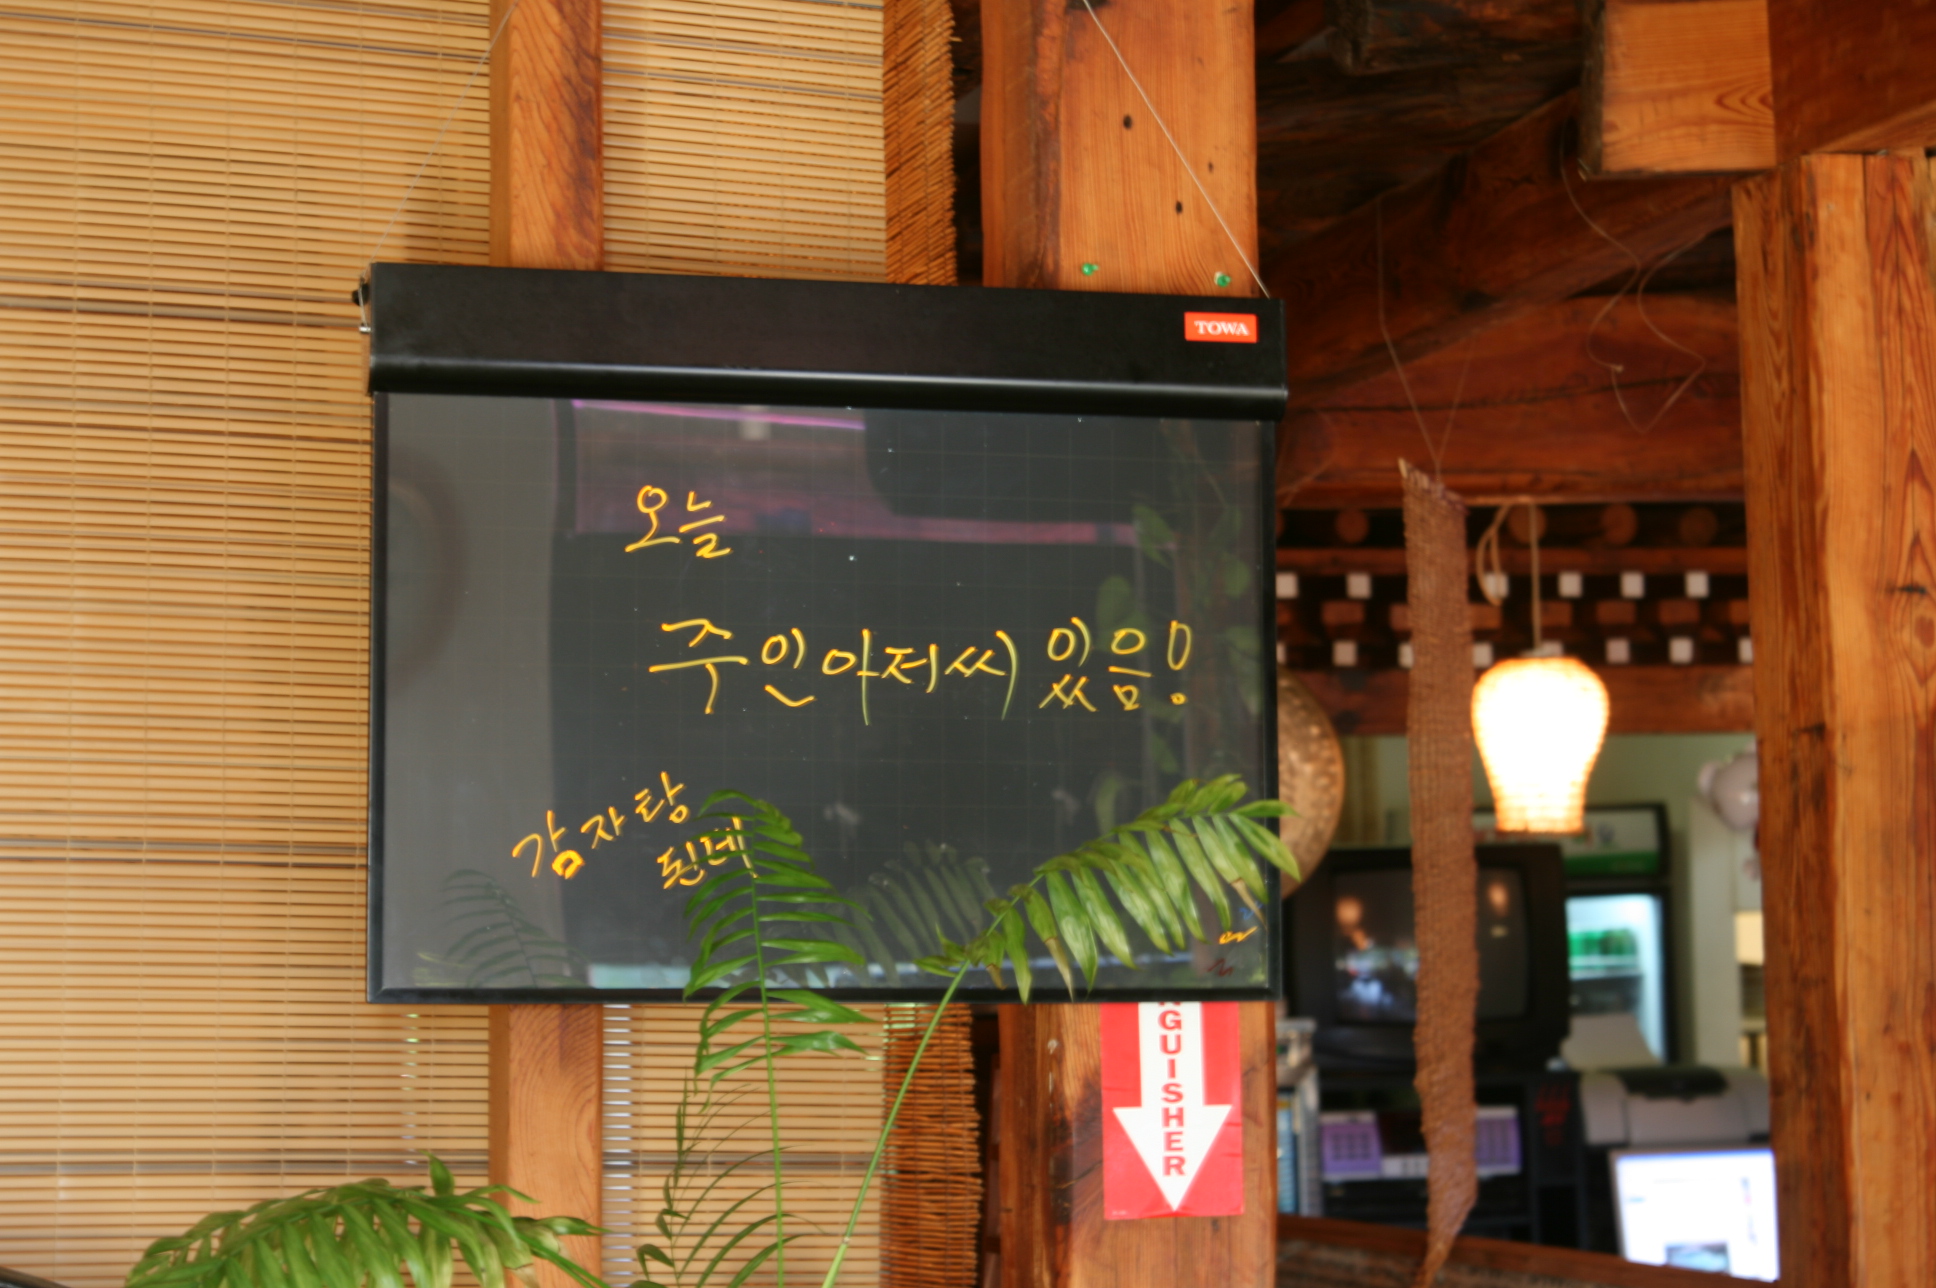 TOWA
오늘
주인아저씨 있음!
감자탕
된데
GUISHER